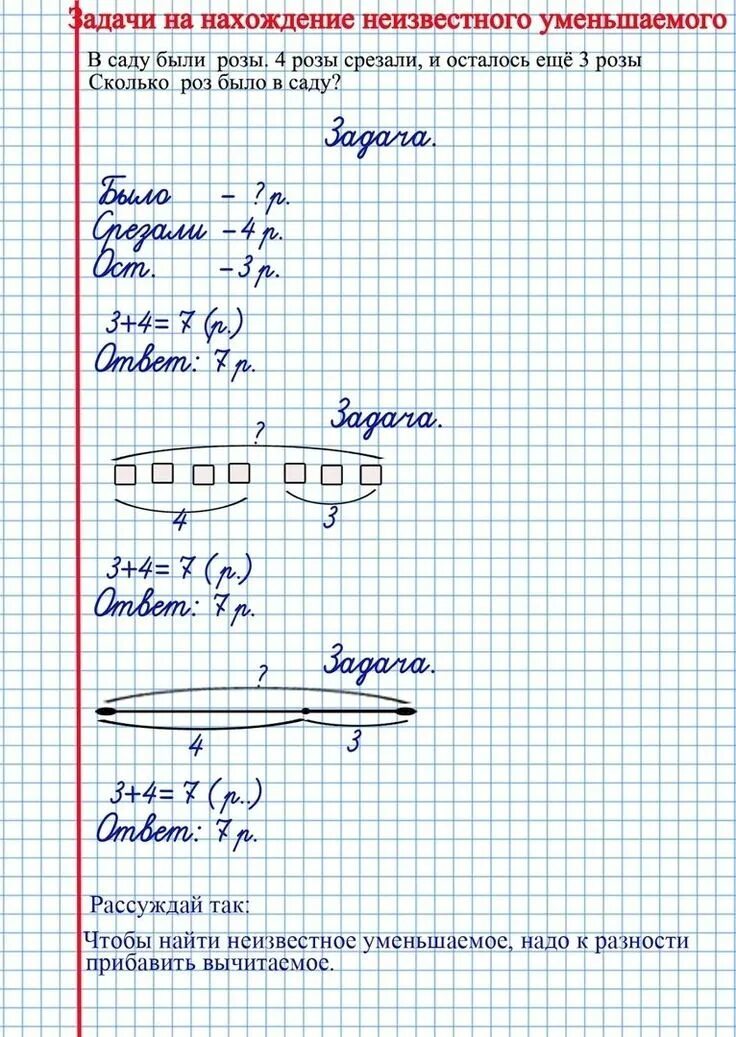 Задачи на нахождение неизвестного уменьшаемого
В саду были розы. 4 розы срезали, и осталось ещё 3 розы
Сколько роз было в саду?
Задача.
Было - ? р.
Срезали - 4 р.
Ост. - 3 р.
3+4= 7 (р.)
Ответ: 7 р.
Задача.
?
4 3
3+4= 7 (р.)
Ответ: 7 р.
Задача.
?
4 3
3+4= 7 (р..)
Ответ: 7 р.
Рассуждай так:
Чтобы найти неизвестное уменьшаемое, надо к разности
прибавить вычитаемое.